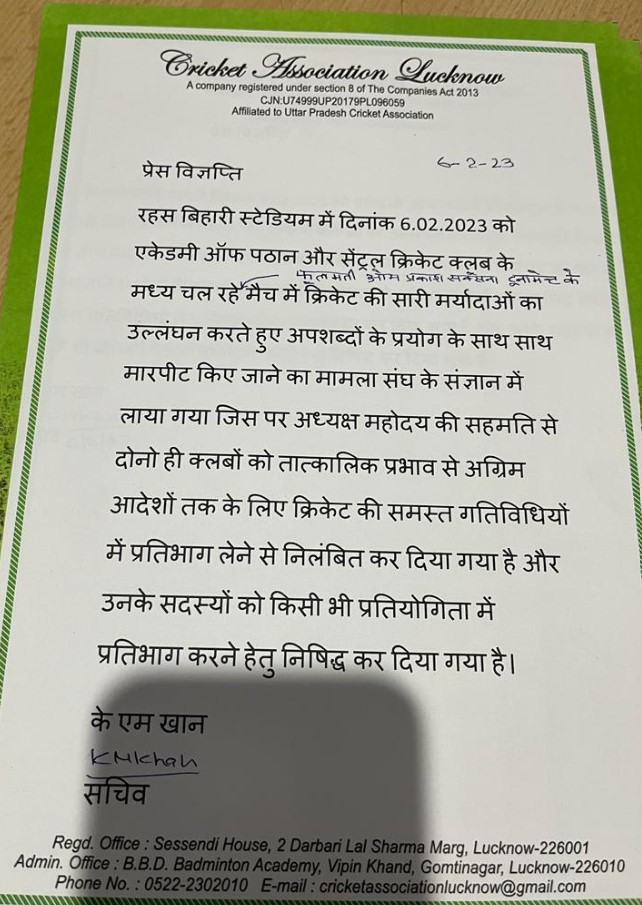 Cricket Association Lucknow
A company registered under section 8 of The Companies Act 2013
CJN:U74999UP20179PL096059
Affiliated to Uttar Pradesh Cricket Association
6-2-23
प्रेस विज्ञप्ति
रहस बिहारी स्टेडियम में दिनांक 6.02.2023 को
एकेडमी ऑफ पठान और सेंट्रल क्रिकेट क्लब के
फूलमती ओम प्रकाश सक्सेना टूर्नामेन्ट के
मध्य चल रहे मैच में क्रिकेट की सारी मर्यादाओं का
उल्लंघन करते हुए अपशब्दों के प्रयोग के साथ साथ
मारपीट किए जाने का मामला संघ के संज्ञान में
लाया गया जिस पर अध्यक्ष महोदय की सहमति से
दोनो ही क्लबों को तात्कालिक प्रभाव से अग्रिम
आदेशों तक के लिए क्रिकेट की समस्त गतिविधियों
में प्रतिभाग लेने से निलंबित कर दिया गया है और
उनके सदस्यों को किसी भी प्रतियोगिता में
प्रतिभाग करने हेतु निषिद्ध कर दिया गया है।
के एम खान
KMKhan
सचिव
Regd. Office : Sessendi House, 2 Darbari Lal Sharma Marg, Lucknow-226001
Admin. Office : B.B.D. Badminton Academy, Vipin Khand, Gomtinagar, Lucknow-226010
Phone No. : 0522-2302010 E-mail : cricketassociationlucknow@gmail.com